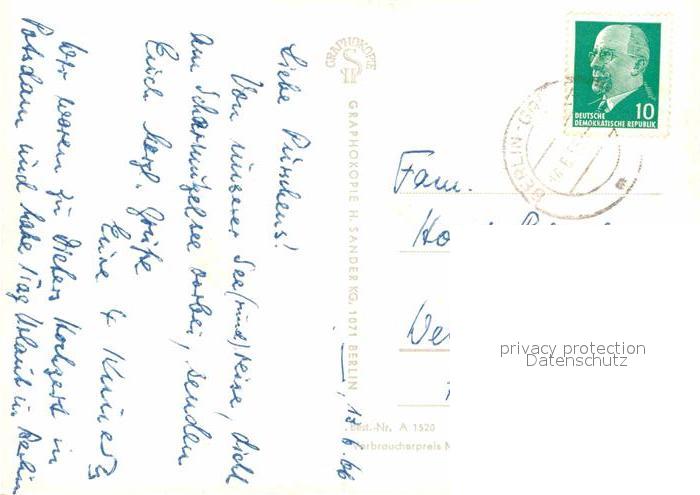 17.6.66
Liebe
Von unserer See(rund)reise, dicht
am Scharmützelsee vorbei, senden
Euch herzl. Grüße
Eure 4
Wir waren zu Dieters Konzert in
Potsdam und habe 1 Tag Urlaub in Berlin
GRAPHOKOPIE
GRAPHOKOPIE H. SANDER KG, 1071 BERLIN
Best.-Nr. A 1520
Verbraucherpreis M
10
DEUTSCHE
DEMOKRATISCHE REPUBLIK
BERLIN-
Fam.
privacy protection
Datenschutz